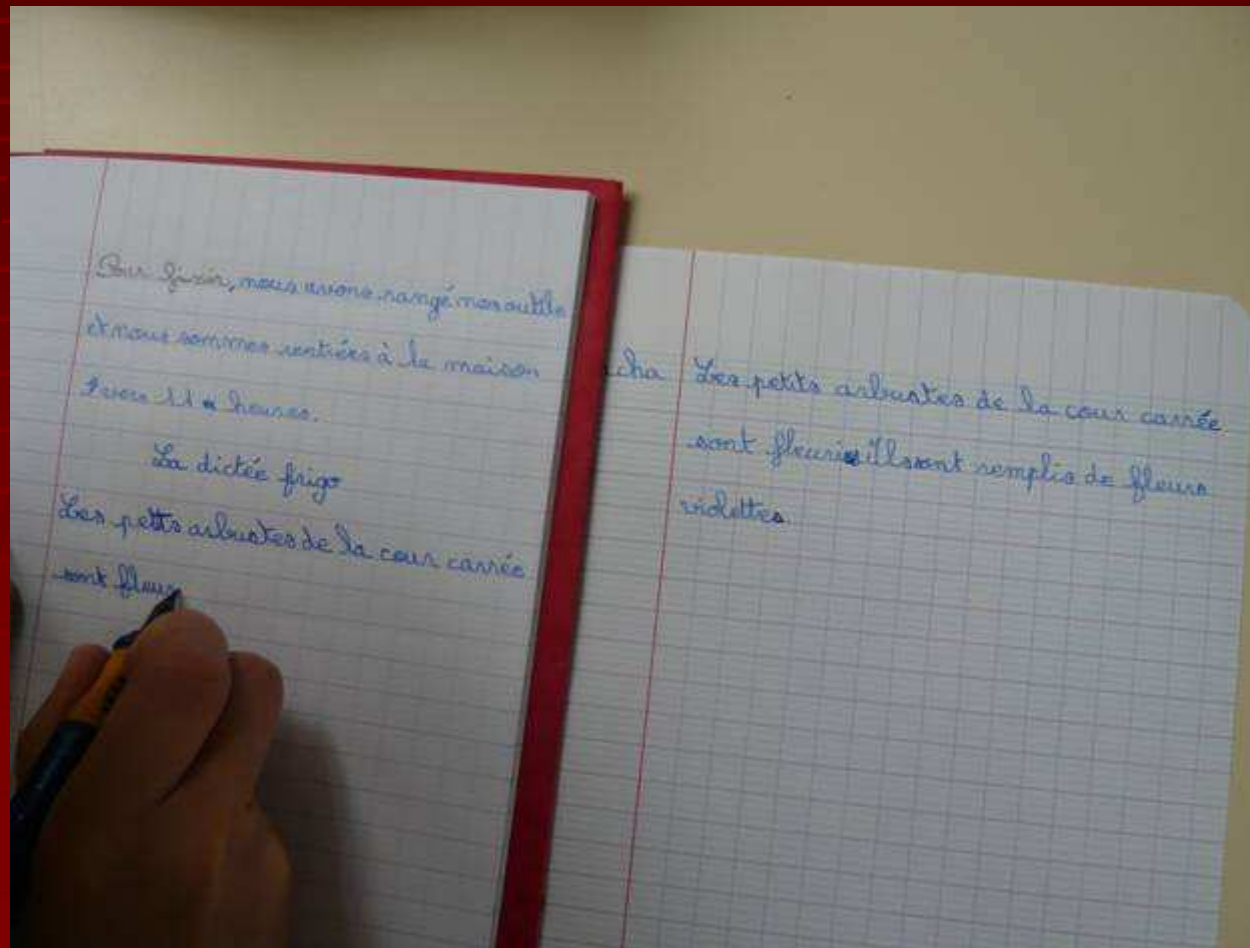 Pour finir, nous avons rangé nos outils
et nous sommes rentrées à la maison
vers 11 heures.
La dictée frigo
Les petits arbustes de la cour carrée
sont fleur
cha
Les petits arbustes de la cour carrée
sont fleuris ils sont remplis de fleurs
violettes